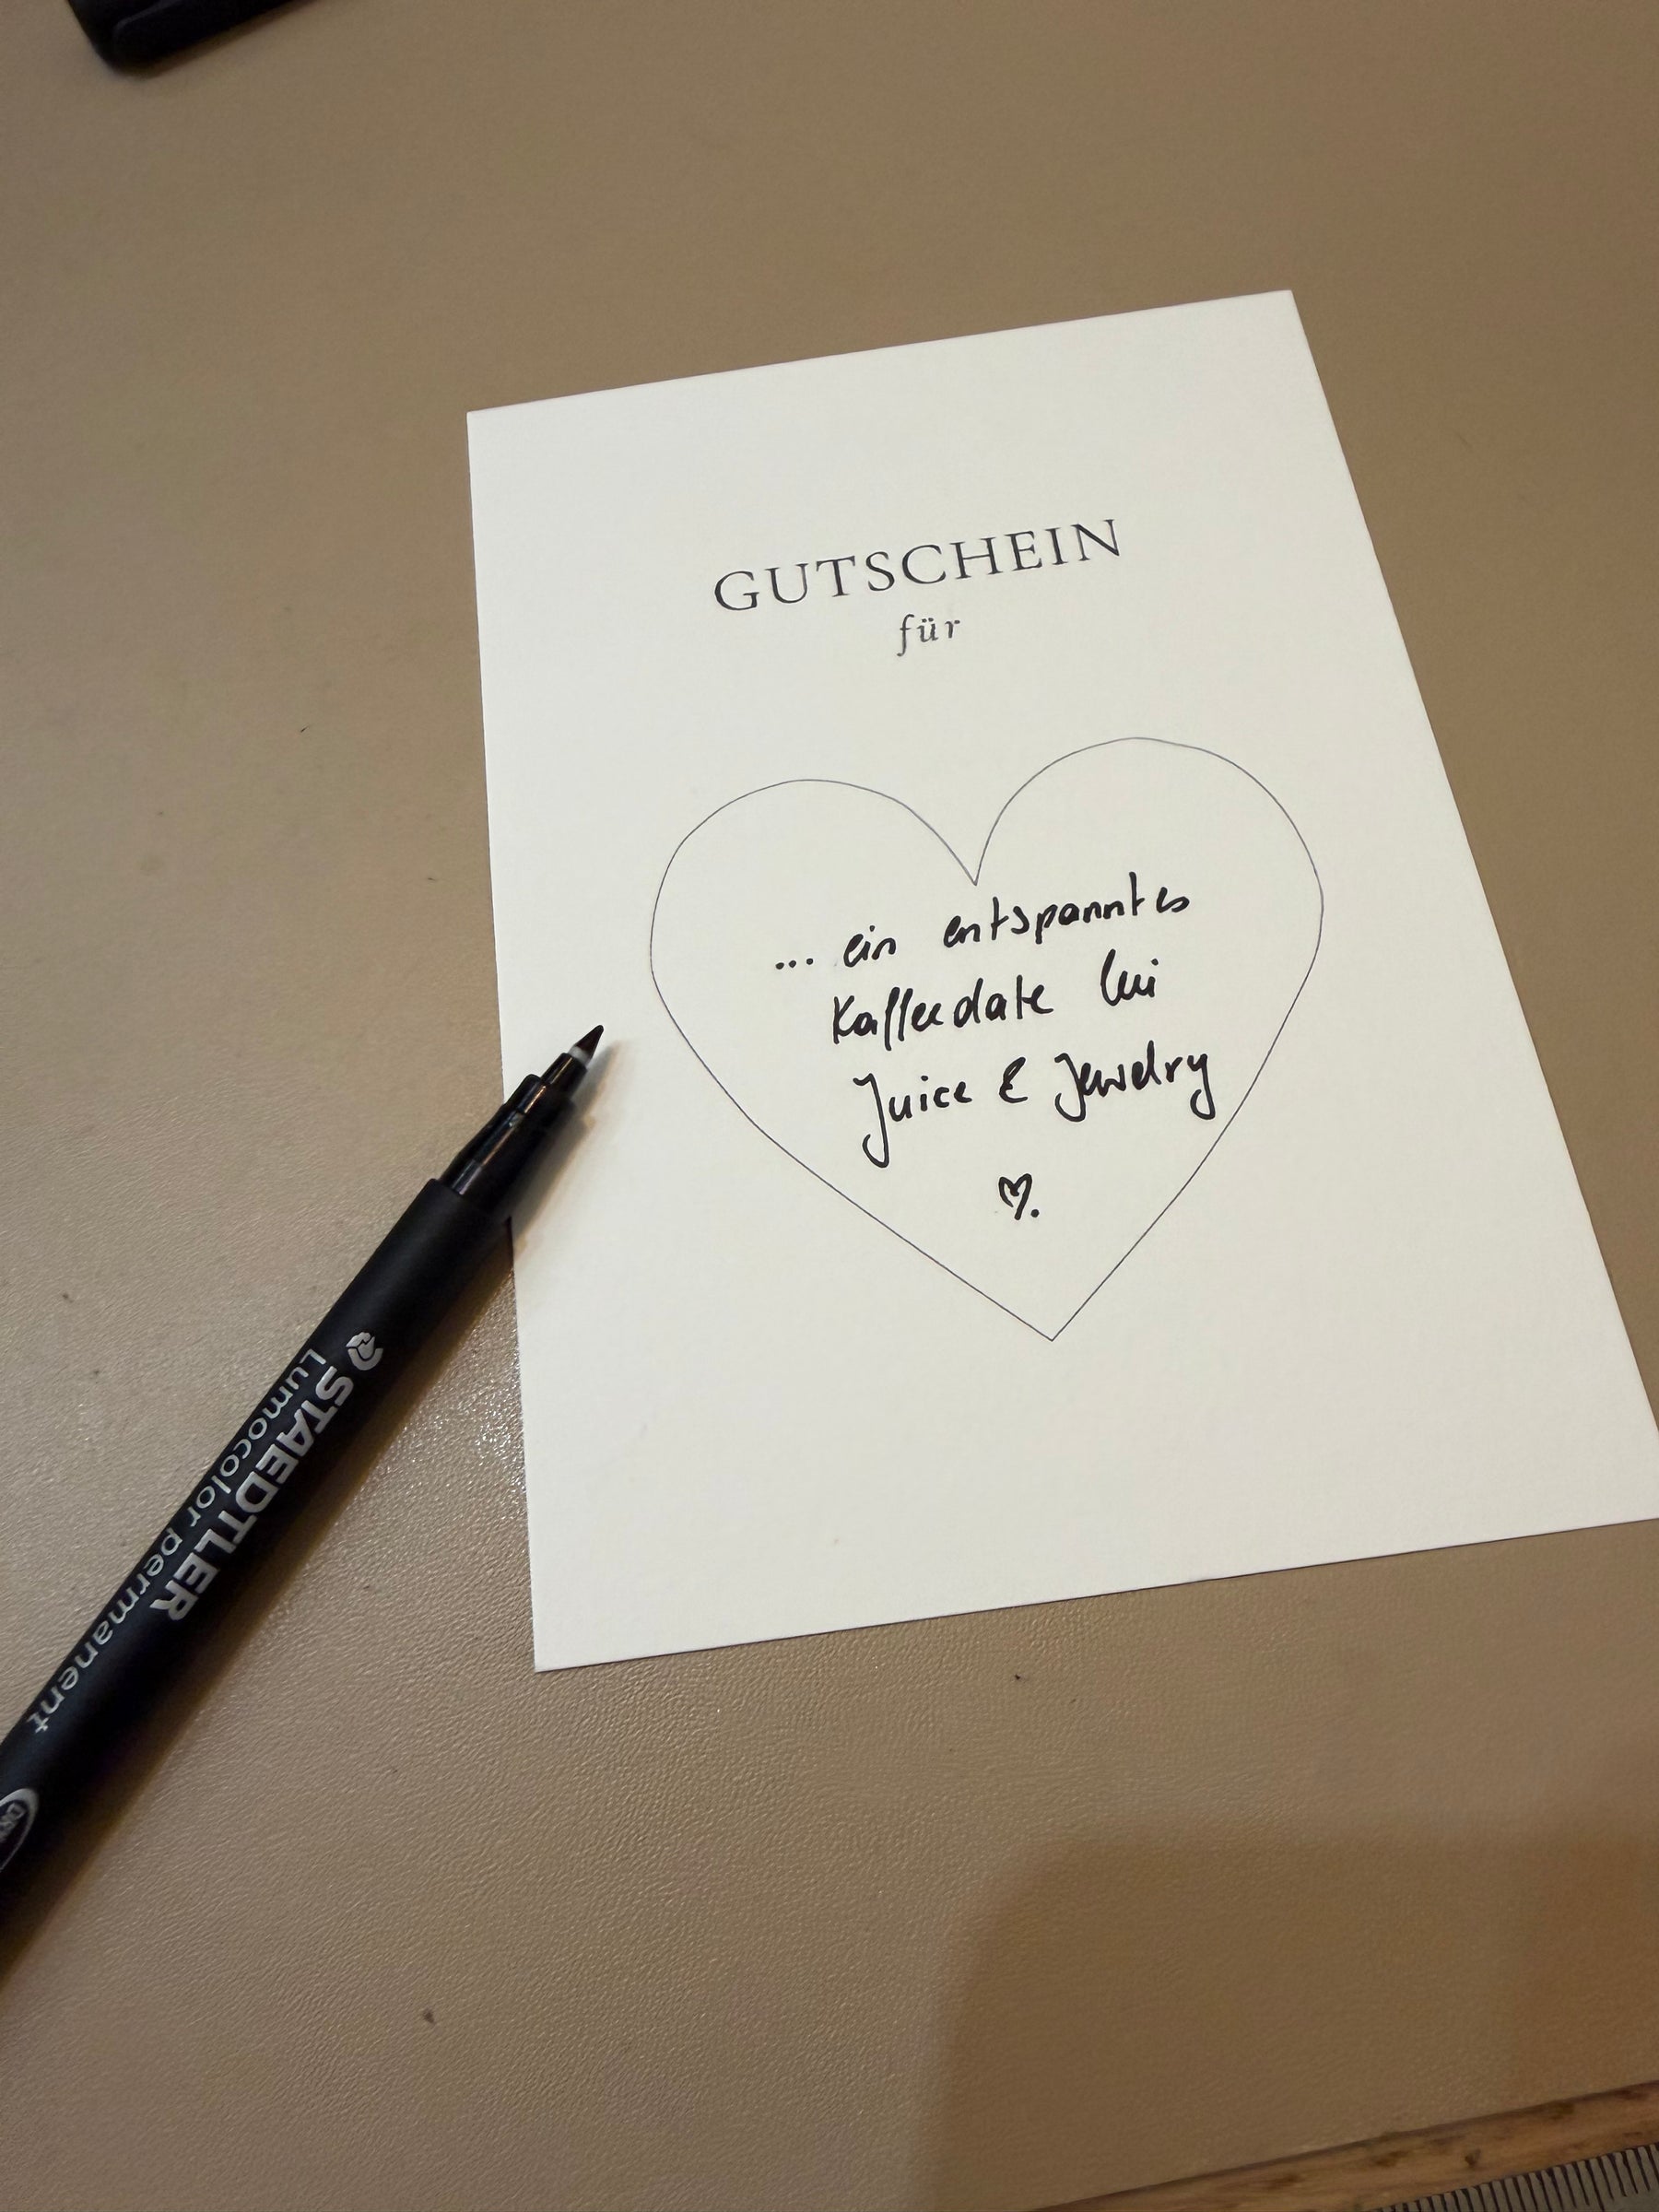 GUTSCHEIN
für
... ein entspanntes
Kaffeedate bei
Juice & Jewelry
♡.
STAEDTLER
Lumocolor permanent